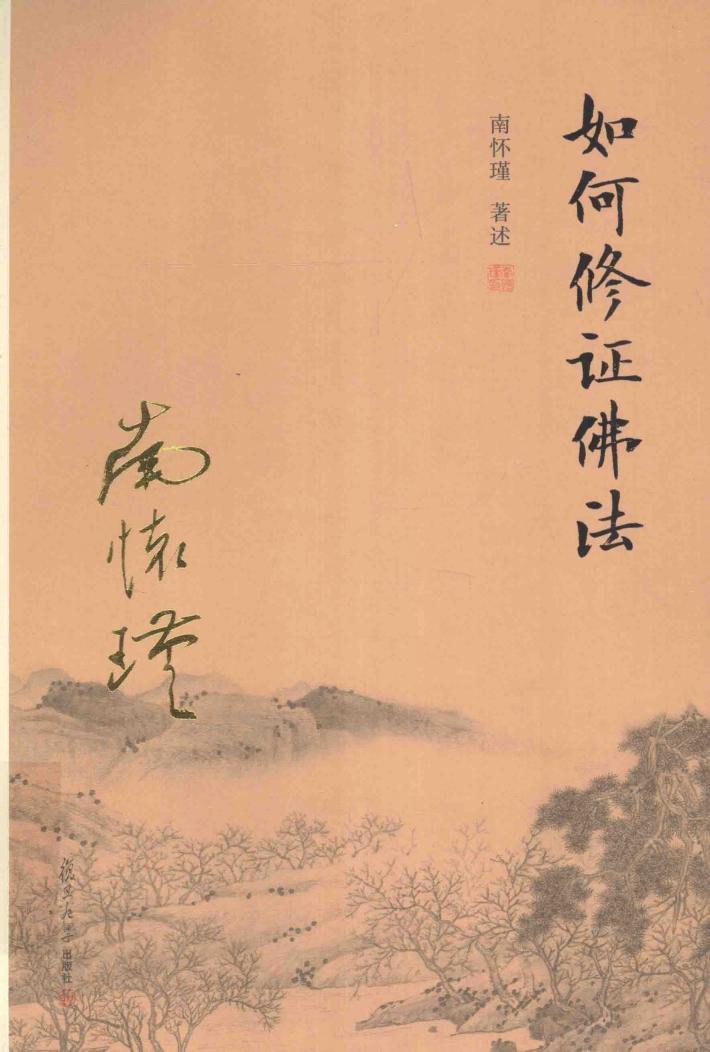 如何修证佛法
南怀瑾 著述
南怀瑾
復旦大学出版社